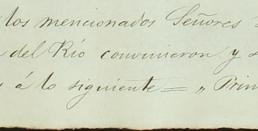 los mencionados Señores
del Río convinieron y
á lo siguiente = „ Prim